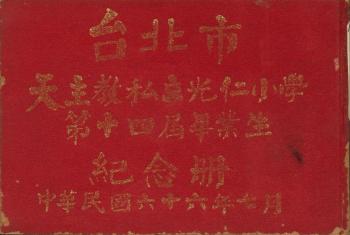 台北市
天主教私立光仁小学
第十四届畢業生
紀念册
中華民國六十六年七月